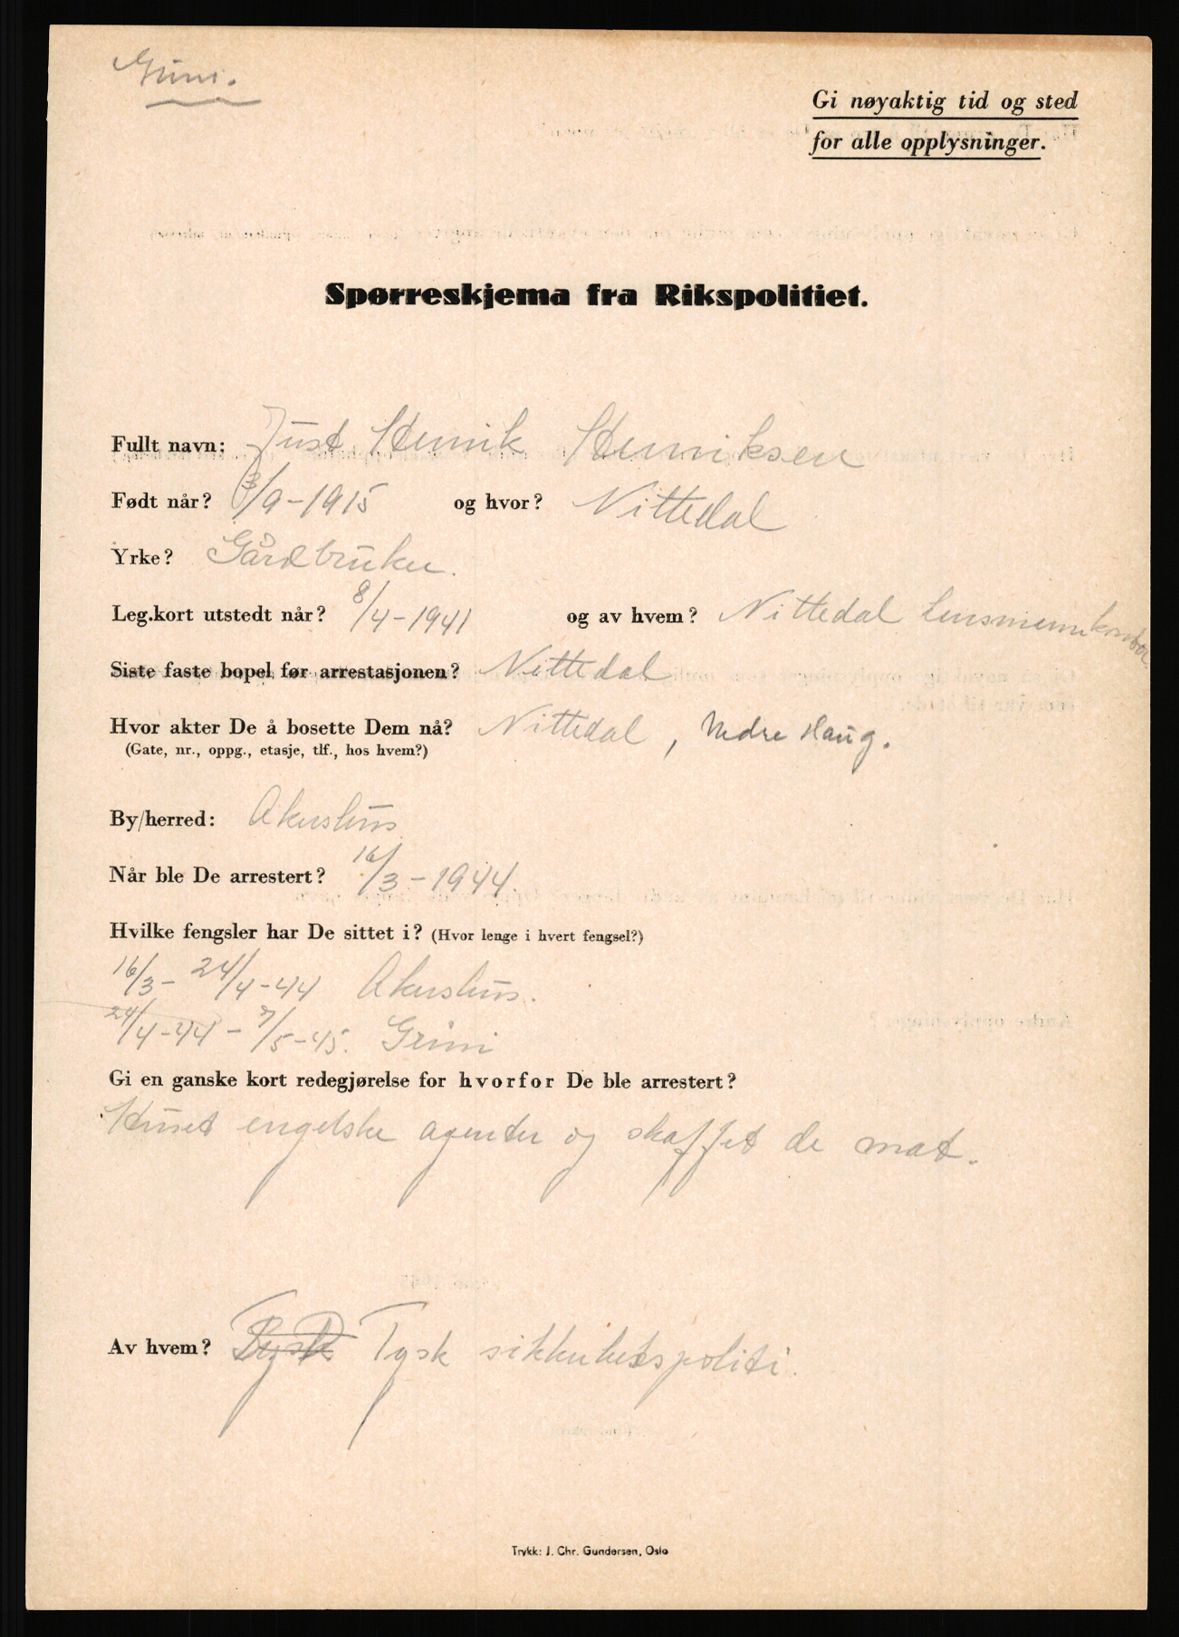 Grini.
Gi nøyaktig tid og sted
for alle opplysninger.
Spørreskjema fra Rikspolitiet.
Fullt navn: Just Henrik Henriksen
Født når? 3/9-1915 og hvor? Nittedal
Yrke? Gårdbruker.
Leg.kort utstedt når? 8/4-1941 og av hvem? Nittedal Lensmannkontor
Siste faste bopel før arrestasjonen? Nittedal
Hvor akter De å bosette Dem nå? Nittedal, Nedre Haug.
(Gate, nr., oppg., etasje, tlf., hos hvem?)
By/herred: Akershus
Når ble De arrestert? 16/3-1944.
Hvilke fengsler har De sittet i? (Hvor lenge i hvert fengsel?)
16/3- 24/4-44 Akershus.
24/4-44 - 7/5-45. Grini
Gi en ganske kort redegjørelse for hvorfor De ble arrestert?
Huset engelske agenter og skaffet de mat.
Av hvem? Tysk Tysk sikkerhetspoliti.
Trykk: J. Chr. Gundersen, Oslo